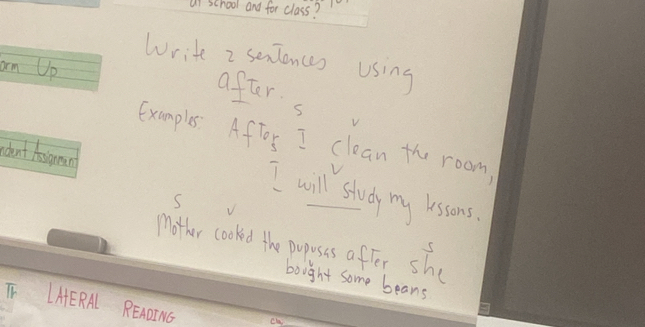 at school and for class?
Write 2 sentences using
after.
orm Up
Examples: After I clean the room,
S
V
I will study my lessons.
V
ndent Assignment
S
V
Mother cooked the pupusas after she
S
bought some beans
V
LATERAL READING